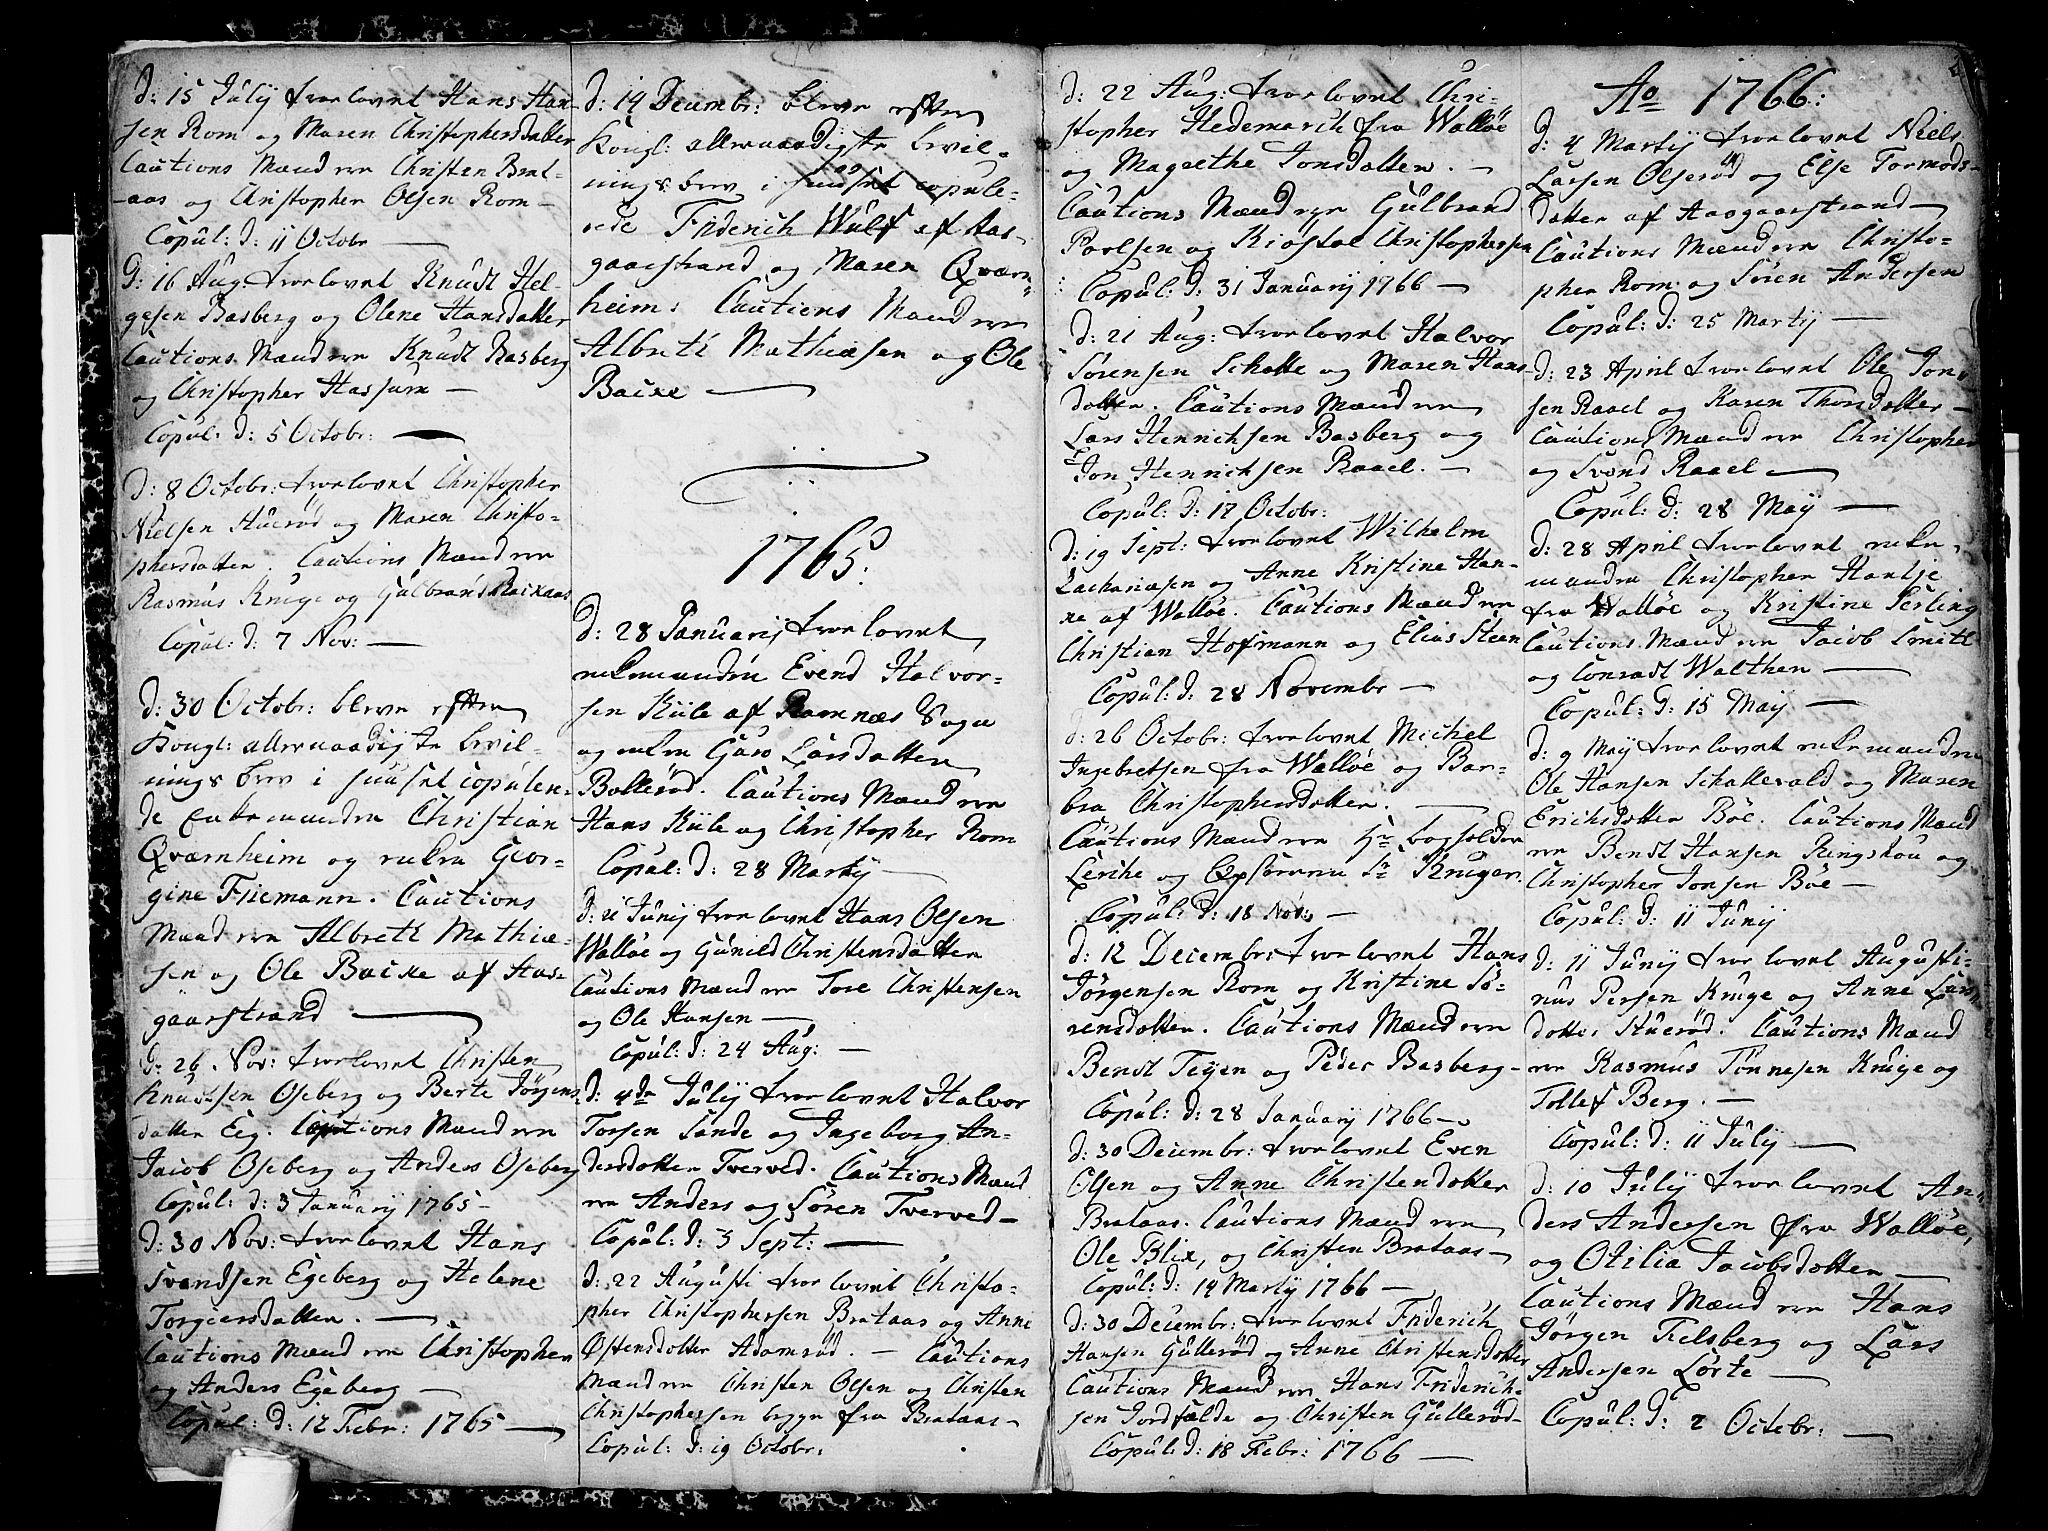 d: 15 Julij trorlovet Hans Han-
sen Rom og Maren Christophersdatter
Cautions Mænd ere Christen Brat-
-aas og Christopher Olsen Rom -
Copul: d: 11 Octobr -
d: 16 Aug: trorlovet Knudt Hel-
gesen Basberg og Olene Hansdatter
Cautions Mænd ere Knudt Basberg
og Christopher Hassum -
Copul: d: 5 Octobr: -
d: 8 Octobr: trorlovet Christopher
Nielsen Stuerød og Maren Christo-
phersdatter. Cautions Mænd ere
Rasmus Kruge og Gulbrand
Copul: d: 7 Nov: -
d: 30 Octobr: bleve efter
Kongl: allernaadigste bevil-
nings brev i huuset copuleri-
de Enkemanden Christian
Qværnheim og enken Geor-
gine Friemann. Cautions
Mænd ere Albrett Mathiæ-
sen og Ole Backe af Aas-
gaarstrand -
d: 26 Nov: trorlovet Christen
Knudtsen Oseberg og Berte Jörgens
datter Eeg. Cautions Mænd ere
Jacob Oseberg og Anders Oseberg
Copul: d: 3 January 1765 -
d: 30 Nov: trorlovet Hans
Svendsen Egeberg og Helene
Torgiersdatter. -
Cautions Mænd ere Christopher
og Anders Egeberg -
Copul: d: 12 Febr: 1765 -
d: 14 Decembr: bleve efter
Kongl: allernaadigste bevil-
nings brev i huuset copule-
rede Friderich Wulf af Aas-
gaarstrand og Maren Qværn-
heim: Cautions Mænd ere
Albrett Mathiæsen og Ole
Backe -
1765:
d: 28 Januarij trorlovet
enkemanden Evend Halvor-
sen Kiile af Ramnæs Sogn
og enken Guro Larsdatter
Bollerød. Cautions Mænd ere
Hans Kiile og Christopher Rom
Copul: d: 28 Martij -
d: 21 Junij trorlovet Hans Olsen
Walløe og Gunild Christensdatter
Cautions Mænd ere Tore Christensen
og Ole Hansen -
Copul: d: 24 Aug: -
d: 4de Julij trorlovet Halvor
Torsen Sande og Ingeborg An-
dersdatter Tverved. Cautions Mænd
ere Anders og Sören Tverved -
Copul: d: 5 Sept: -
d: 22 Augusti trorlovet Christo-
pher Christophersen Brataas og Anne
Østensdatter Adamrød. - Cautions
Mænd ere Christen Olsen og Christen
Christophersen begge fra Brataas -
Copul: d: 19 Octobr:
d: 22 Aug: trorlovet Chri-
stopher Hedemarck fra Walløe
og Magrethe Jonsdatter. -
Cautions Mænd ere Gulbrand
Poelsen og Kiøstol Christophersen
Copul: d: 31 January 1766 -
d: 21 Aug: trorlovet Halvor
Sörensen Schatte og Maren Hans-
datter. Cautions Mænd ere
Lars Henrichsen Basberg og
Jon Henrichsen Raael. -
Copul: d: 17 Octobr:
d: 19 Sept: trorlovet Wilhelm
Zachariæsen og Anne Kristine Han-
ke af Walløe. Cautions Mænd ere
Christian Hofmann og Elias Steen
Copul: d: 28 Novembr -
d: 26 Octobr: trorlovet Michel
Ingebretsen fra Walløe og Bar-
bra Christophersdatter. -
Cautions Mænd ere Hr: bogholder
Lerche og Opsörerne Sr Kruger.
Copul: d: 18 Nov: -
d: 12 Decembr: trorlovet Hans
Jörgensen Rom og Kristine Sö-
rensdatter. Cautions Mænd ere
Bendt Teyen og Peder Basberg -
Copul: d: 28 January 1766 -
d: 30 Decembr: trorlovet Even
Olsen og Anne Christensdatter
Brataas. Cautions Mænd ere
Ole Blix, og Christen Brataas -
Copul: d: 14 Martij 1766 -
d: 30 Decembr: trorlovet Friderich
Hansen Gullerød og Anne Christensdatter
Cautions Mænd ere Hans Friderich-
sen Jordfalde og Christen Gullerød -
Copul: d: 18 Febr: 1766 -
Ao 1766:
d: 4 Martij trorlovet Niels
Larsen Olserød og Else Tormods-
datter af Aasgaarstrand -
Cautions Mænd ere Christo-
pher Rom og Sören Andersen
Copul: d: 25 Martij -
d: 23 April trorlovet Ole Jon-
sen Raael og Karen Thorsdatter -
Cautions Mænd ere Christopher
og Svend Raael -
Copul: d: 28 Maij -
d: 28 April trorlovet enke-
manden Christopher Hantje
fra Walløe og Kristine Serling
Cautions Mænd ere Jacob Smitt
og Conradt Walther -
Copul: d: 15 Maij -
d: 9 Maij trorlovet enkemanden
Ole Hansen Schallevald og Maren
Erichsdatter Böe. Cautions Mænd
ere Bendt Hansen Ringshou og
Christopher Jonsen Böe -
Copul: d: 11 Junij
d: 11 Junij trorlovet Augusti-
nus Persen Kruge og Anne Lars
datter Stuerød. Cautions Mænd
ere Rasmus Tönnesen Kruge og
Tollef Berg. -
Copul: d: 11 Julij -
d: 10 Julij trorlovet An-
ders Andersen fra Walløe,
og Otilia Jacobsdatter -
Cautions Mænd ere Hans
Jörgen Felsberg og Lars
Andersen Lörte -
Copul: d: 2 Octobr: -